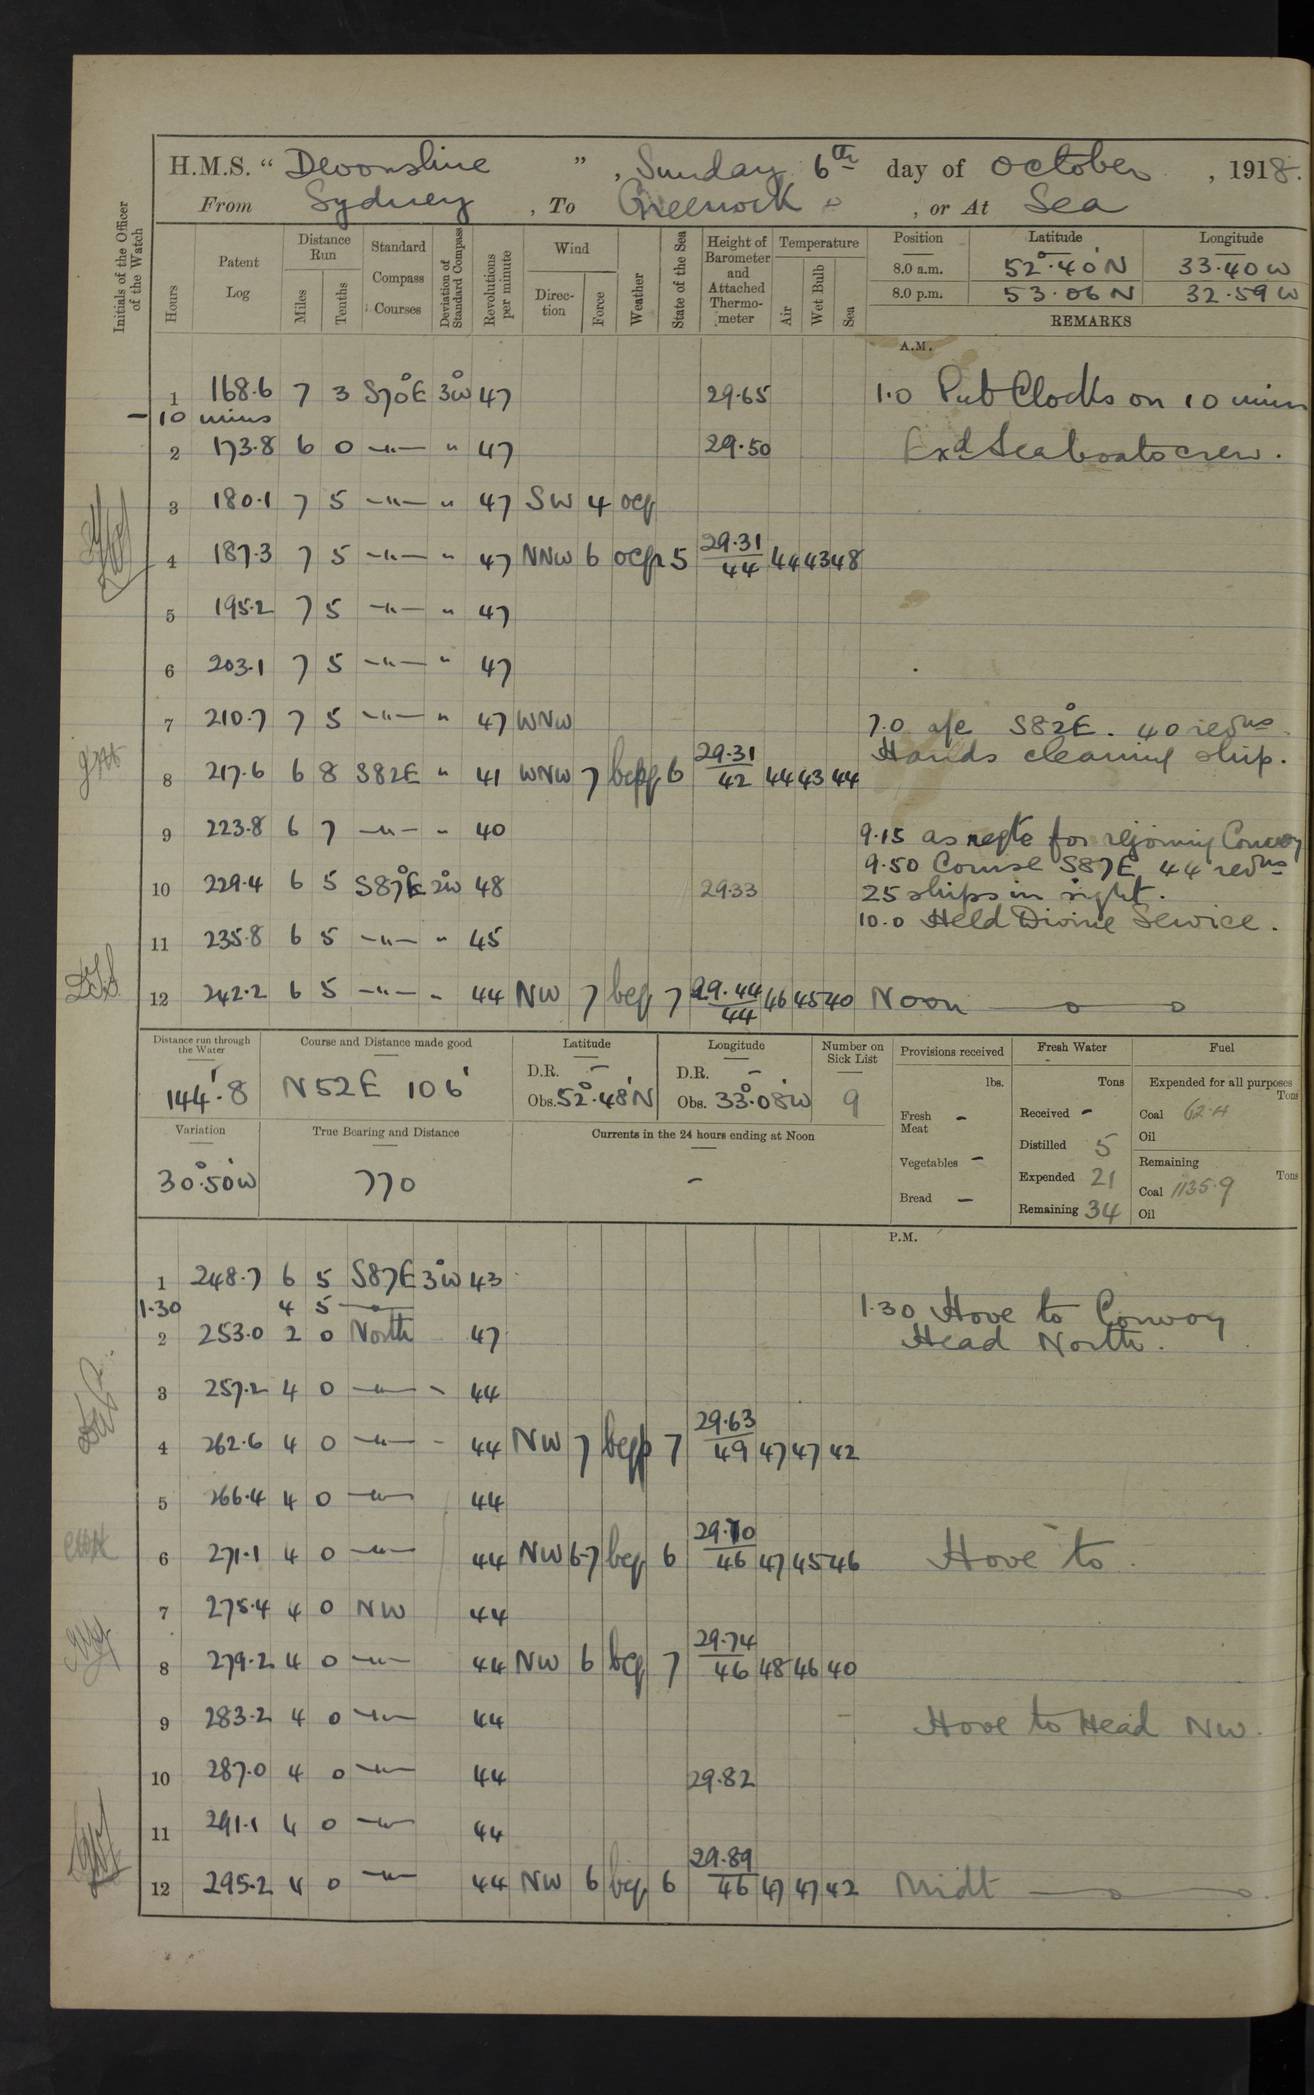 H.M.S. “ Devonshire ”, Sunday 6th day of October, 1918.
From Sydney, To Greenock, or At Sea
Initials of the Officer of the Watch
Hours
Patent Log
Distance Run
Miles
Tenths
Standard Compass Courses
Deviation of Standard Compass
Revolutions per minute
Wind
Direction
Force
Weather
State of the Sea
Height of Barometer and Attached Thermometer
Temperature
Air
Wet Bulb
Sea
Position Latitude Longitude
8.0 a.m. 52°.40'N 33.40 W
8.0 p.m. 53.06 N 32.59 W
REMARKS
A.M.
1 168.6 7 3 S70°E 3°W 47 29.65 1.0 Put Clocks on 10 mins
-10 mins
2 173.8 6 0 -"- " 47 29.50 Exd Seaboats crew.
3 180.1 7 5 -"- " 47 SW 4 ocq
4 187.3 7 5 -"- " 47 NNW 6 ocqr 5 29.31/44 44 43 48
5 195.2 7 5 -"- " 47
6 203.1 7 5 -"- " 47
7 210.7 7 5 -"- " 47 WNW 7.0 a/c S82°E. 40 revns.
Hands cleaning ship.
8 217.6 6 8 S82E " 41 WNW 7 bcpq 6 29.31/42 44 43 44
9 223.8 6 7 -"- " 40 9.15 as reqte for rejoining Convoy
9.50 Course S87E 44 revns
10 229.4 6 5 S87°E 2°W 48 29.33 25 ships in sight.
10.0 Held Divine Service.
11 235.8 6 5 -"- " 45
12 242.2 6 5 -"- " 44 NW 7 bcq 7 29.44/44 46 45 40 Noon
Distance run through the Water
144'.8
Course and Distance made good
N52E 106'
Latitude
D.R. -
Obs. 52°.48'N
Longitude
D.R. -
Obs. 33°.08'W
Number on Sick List
9
Provisions received
lbs.
Fresh Meat -
Vegetables -
Bread -
Fresh Water
Tons
Received -
Distilled 5
Expended 21
Remaining 34
Fuel
Expended for all purposes
Tons
Coal 62.4
Oil
Remaining
Tons
Coal 1135.9
Oil
Variation
30°.50'W
True Bearing and Distance
770
Currents in the 24 hours ending at Noon
-
P.M.
1 248.7 6 5 S87E 3°W 43
1.30 4 5 1.30 Hove to Convoy
2 253.0 2 0 North 47 Head North.
3 257.2 4 0 -"- - 44
4 262.6 4 0 -"- - 44 NW 7 bcqp 7 29.63/49 47 47 42
5 266.4 4 0 -"- 44
6 271.1 4 0 -"- 44 NW 6-7 bcq 6 29.70/46 47 45 46 Hove to.
7 275.4 4 0 NW 44
8 279.2 4 0 -"- 44 NW 6 bcq 7 29.74/46 48 46 40
9 283.2 4 0 -"- 44 Hove to Head NW.
10 287.0 4 0 -"- 44 29.82
11 291.1 4 0 -"- 44
12 295.2 4 0 -"- 44 NW 6 bcq 6 29.89/46 47 47 42 Midt